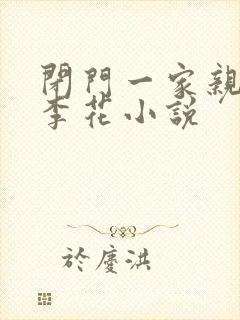 閉門一家親
李花小說
於慶洪